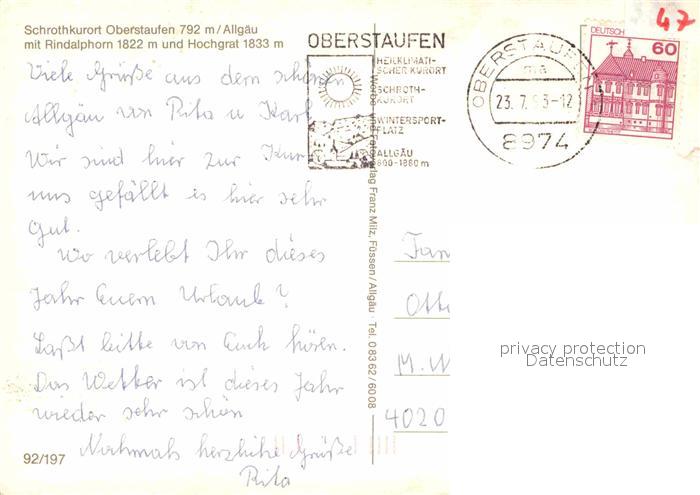 Schrothkurort Oberstaufen 792 m/Allgäu
mit Rindalphorn 1822 m und Hochgrat 1833 m
Viele Grüße aus dem schönen
Allgäu von Rita u Karl
Wir sind hier zur Kur
uns gefällt es hier sehr
gut.
Wo verlebt Ihr dieses
Jahr Euern Urlaub?
Laßt bitte von Euch hören.
Das Wetter ist dieses Jahr
wieder sehr schön
Nochmals herzliche Grüße
Rita
92/197
OBERSTAUFEN
HEILKLIMATI-
SCHER KURORT
SCHROTH-
KURORT
WINTERSPORT-
PLATZ
ALLGÄU
800-1880 m
Werbe- und Fotoverlag Franz Milz, Füssen/Allgäu · Tel. 08362/6008
OBERSTAUFEN
ma
23. 7. 93-12
8974
47
DEUTSCH
60
Fam
Otto
M. W
4020
privacy protection
Datenschutz